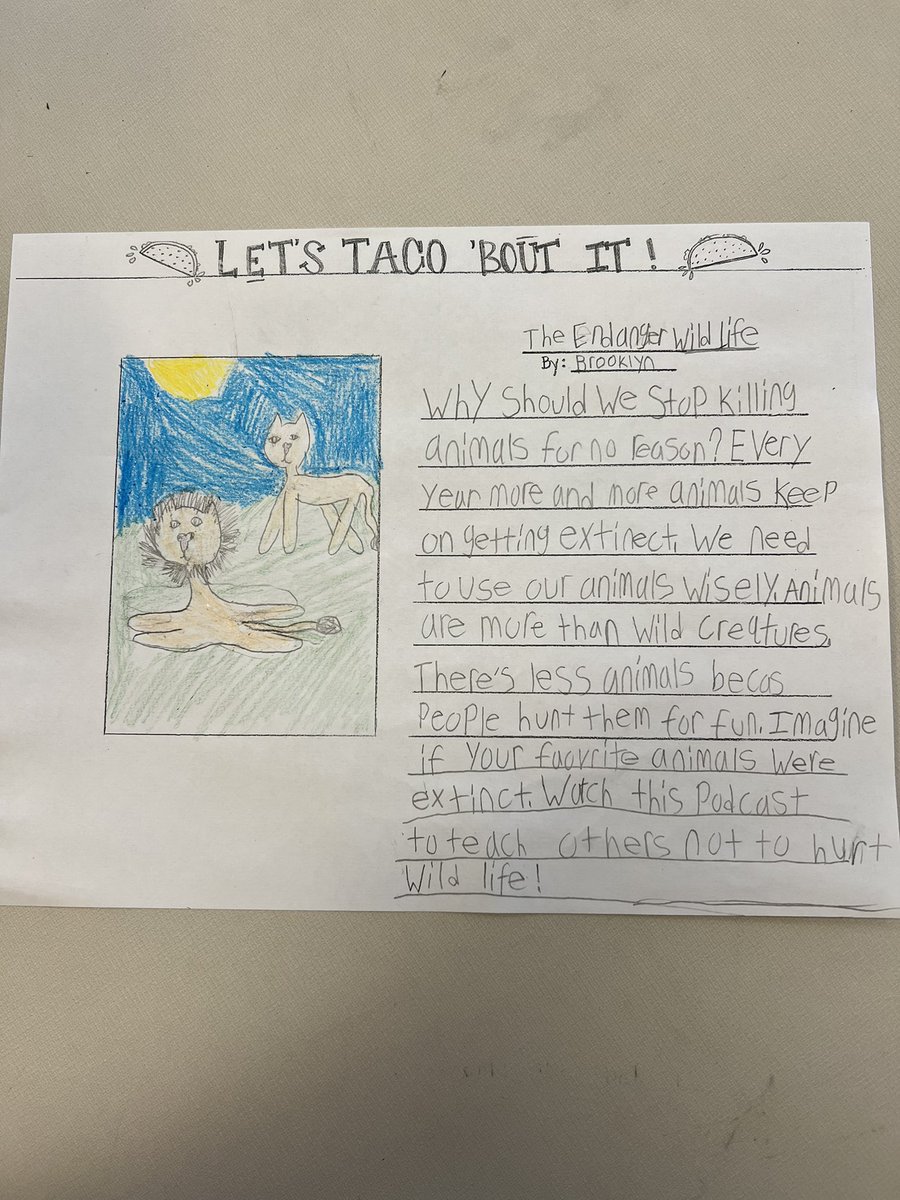 LET'S TACO 'BOUT IT!
The Endanger Wild life
By: Brooklyn
Why Should We Stop killing
animals for no reason? Every
year more and more animals keep
on getting extinect. We need
to use our animals wisely. Animals
are more than wild creatures.
There's less animals becas
People hunt them for fun. Imagine
if your faovrite animals were
extinct. Watch this Podcast
to teach others not to hurt
Wild life!